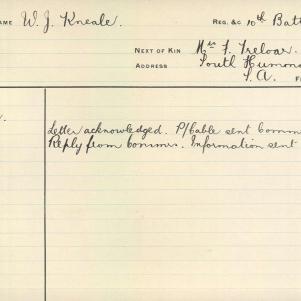 AME W. J. Kneale. REG. &C 10th Batt
NEXT OF KIN Mrs F. Treloar.
ADDRESS South Hummo
S.A. F
Letter acknowledged. P/Cable sent Comm
Reply from commrs. Information sent